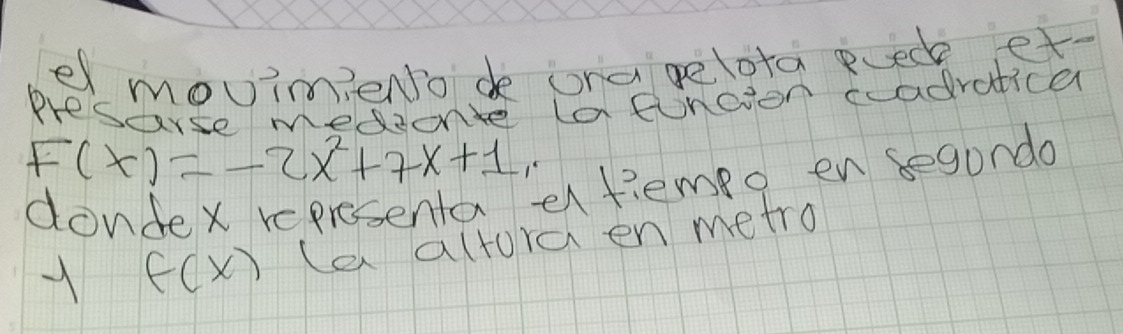 el movimiento de una pelota puede ex-
presarse mediante la función cuadratica
F(x)=-2x²+7x+1,
donde x representa el tiempo en segundo
y f(x) la altura en metro